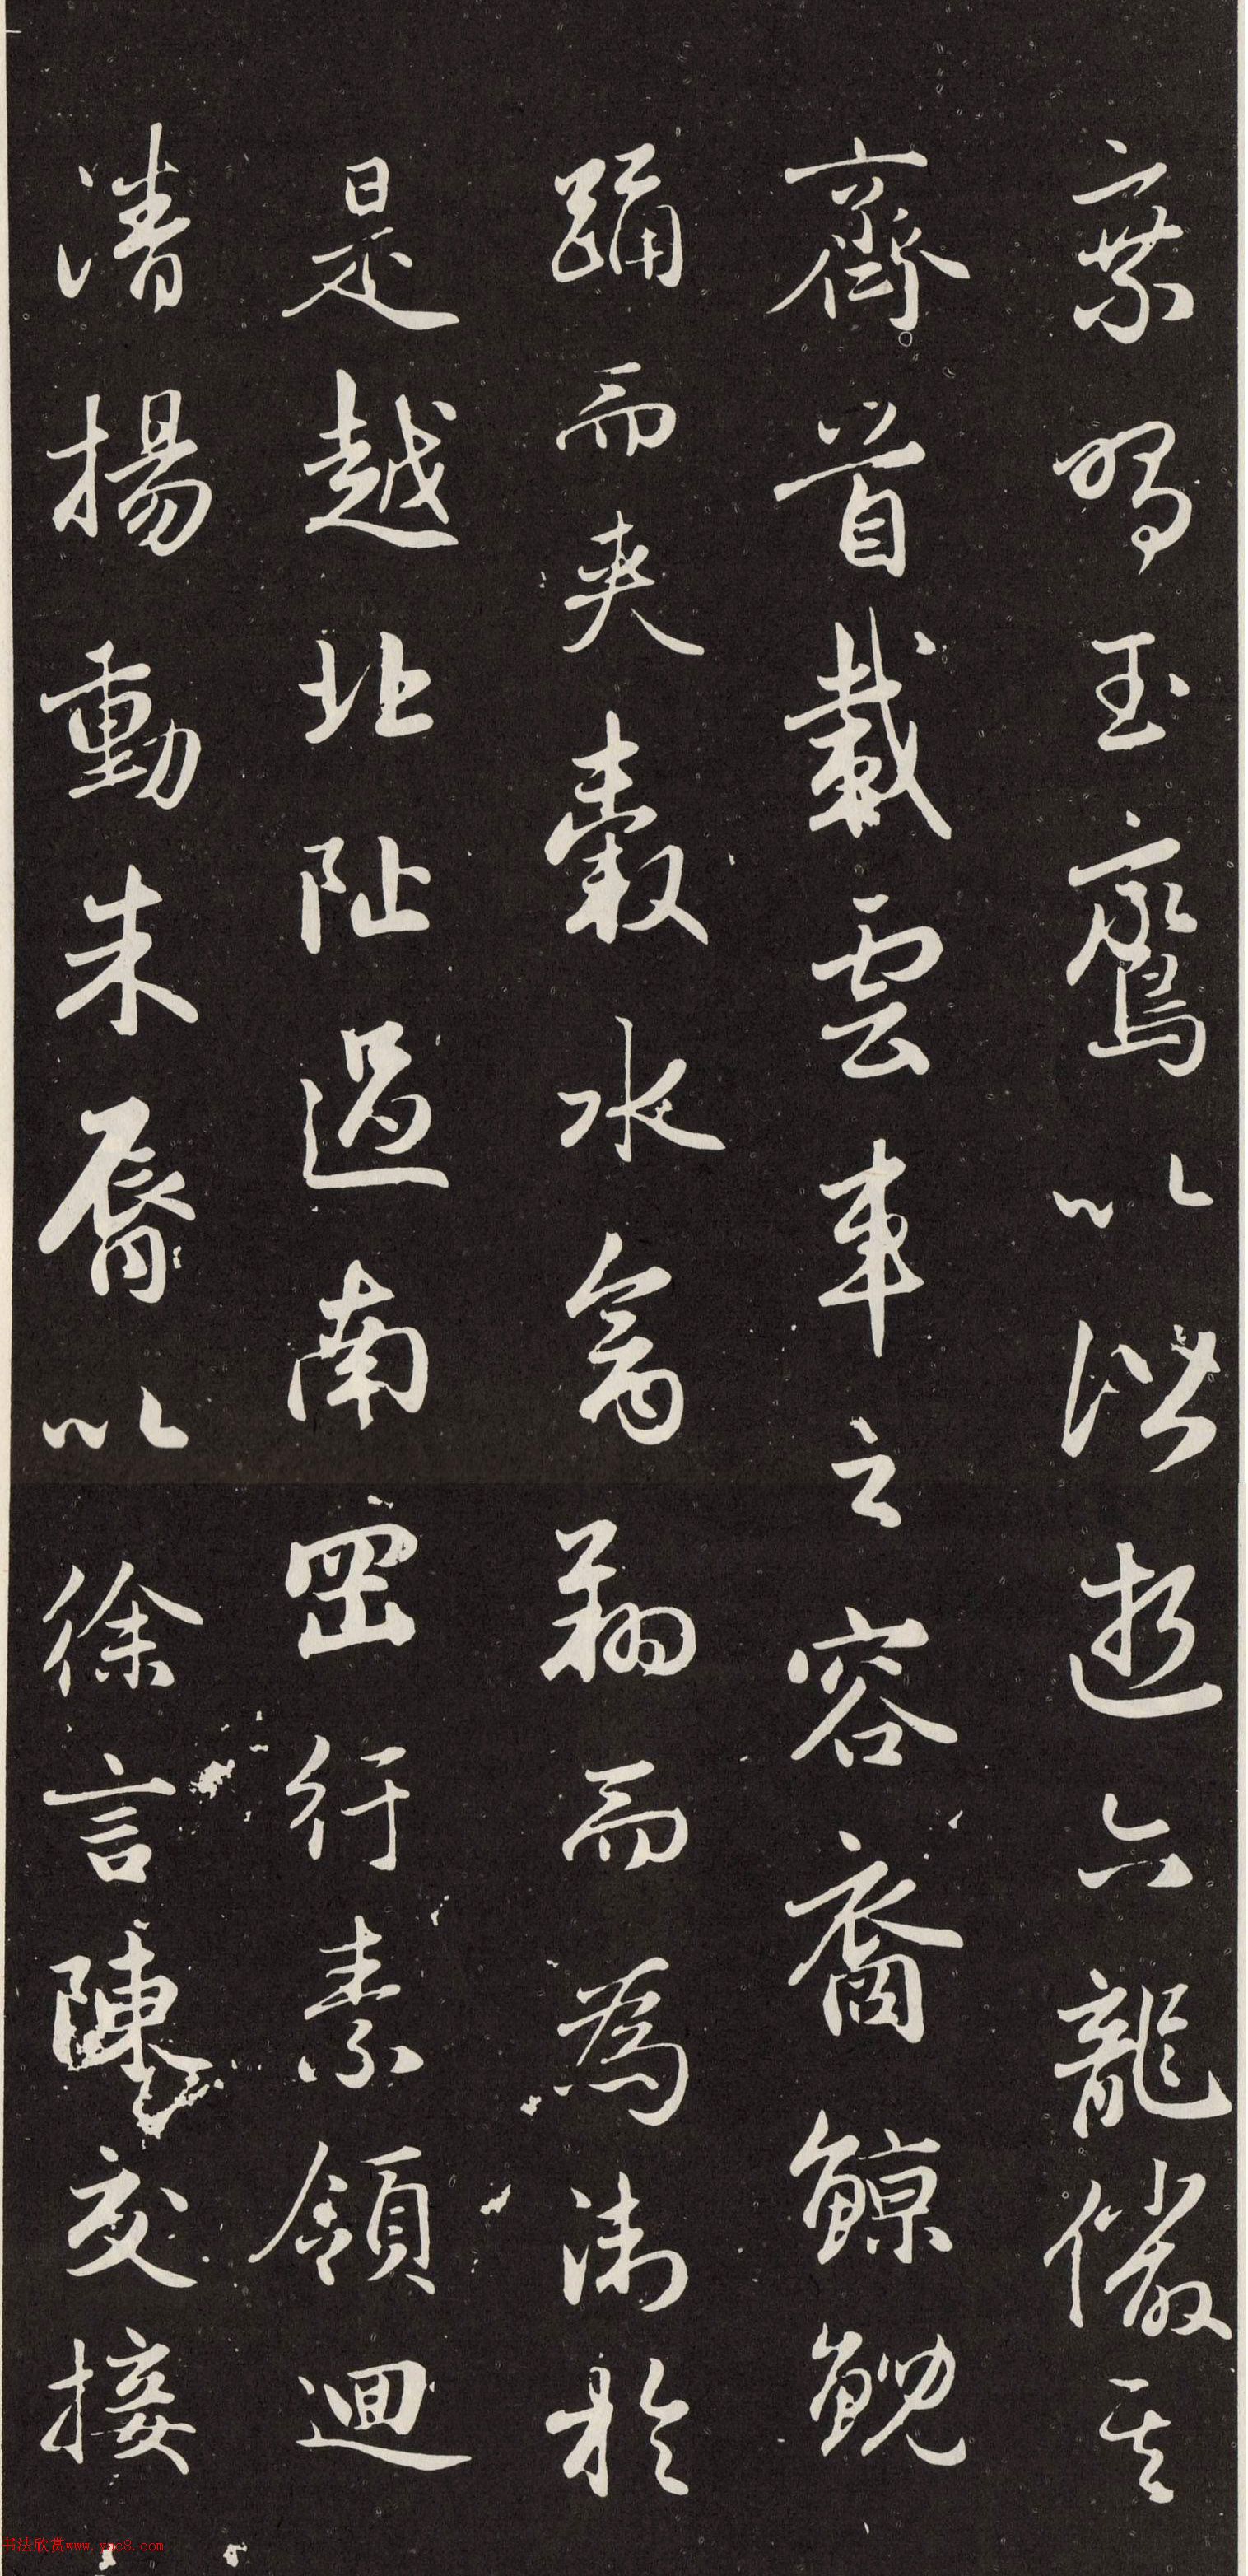 乘鳴玉鸞以諧逝六龍儼其
齊首載雲車之容裔鯨鯢
踊而夾轂水禽翔而為衛於
是越北阯過南岡行素領迴
清揚動朱脣以徐言陳交接
书法欣赏www.yac8.com